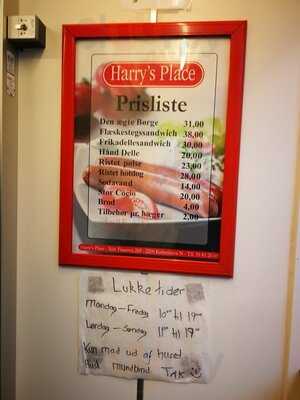 Harry's Place
Prisliste
Den ægte Børge 31,00
Flæskestegssandwich 38,00
Frikadellesandwich 30,00
Hånd Delle 20,00
Ristet pølse 23,00
Ristet hotdog 28,00
Sodavand 14,00
Stor Cocio 20,00
Brød 4,00
Tilbehør pr. bæger 2,00
Harry's Place
Lukketider
Mandag - Fredag 10⁰⁰ til 19⁰⁰
Lørdag - Søndag 11⁰⁰ til 19⁰⁰
Kun mad ud af huset
mundbind TAK